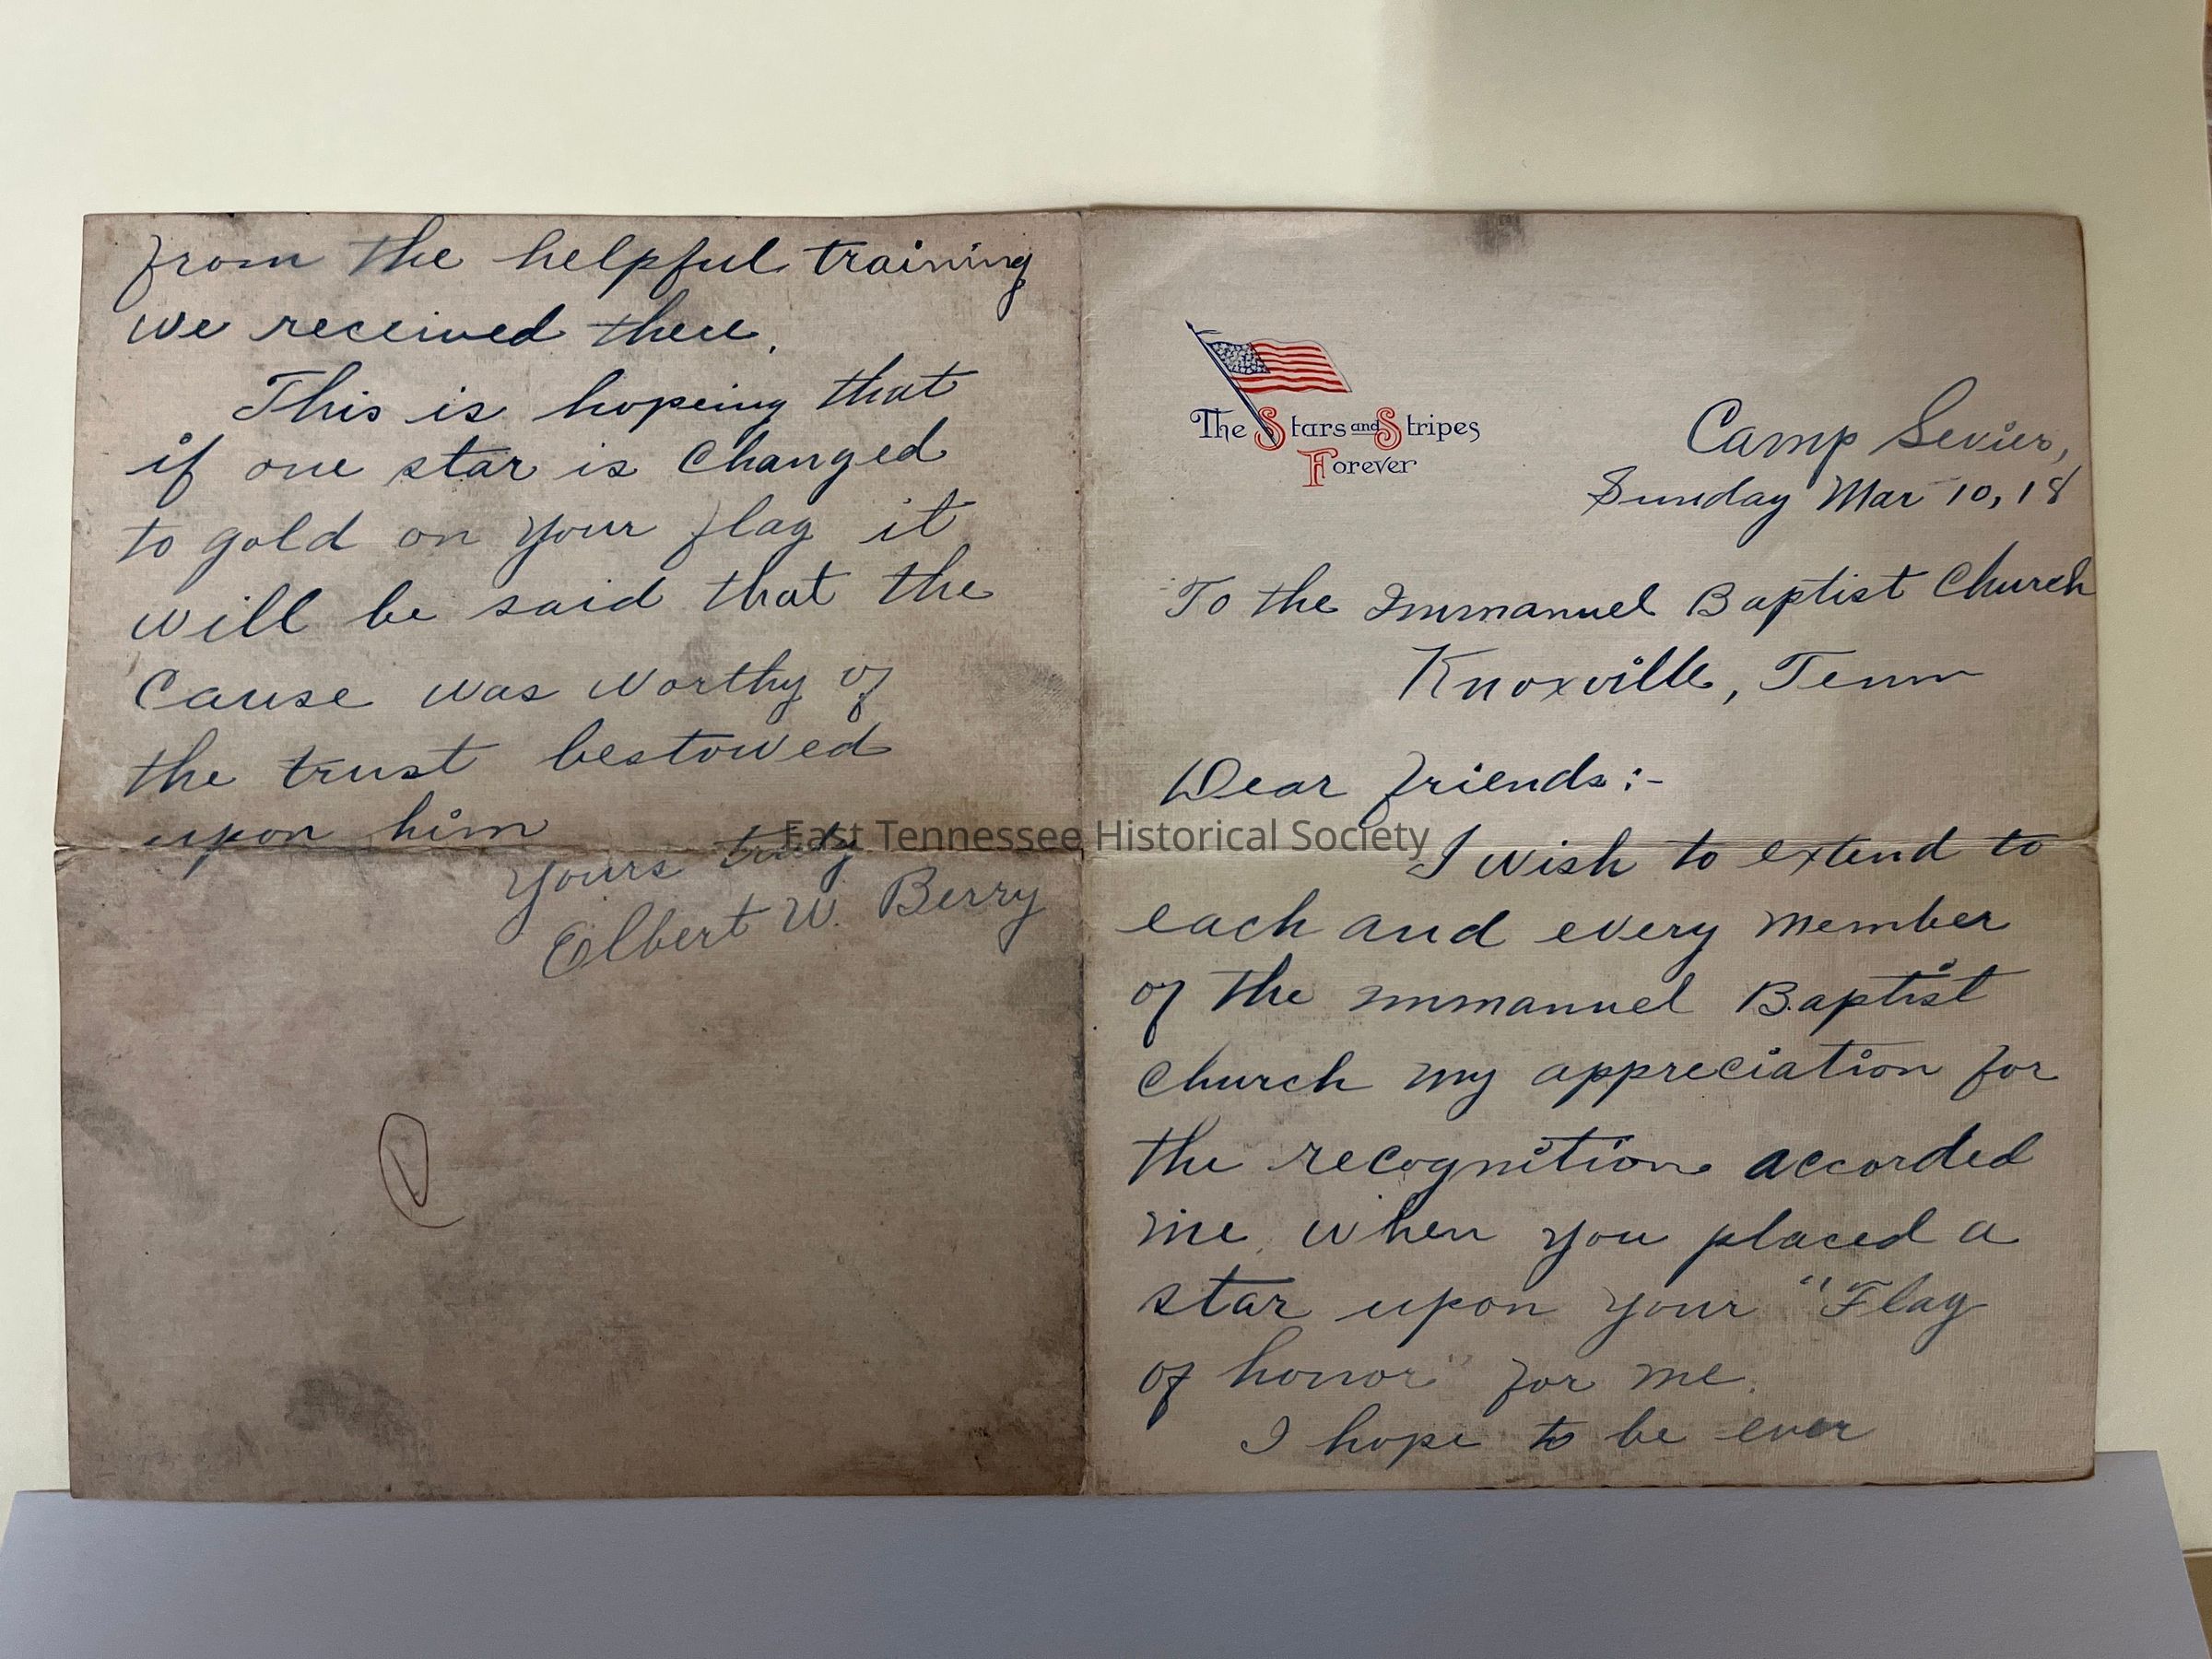 from the helpful training
we received there.
This is hopeing that
if one star is changed
to gold on your flag it
will be said that the
cause was worthy of
the trust bestowed
upon him
Yours truly
Elbert W. Berry
The Stars and Stripes
Forever
Camp Sevier,
Sunday Mar 10, 18
To the Immanuel Baptist Church
Knoxville, Tenn
Dear friends:-
I wish to extend to
each and every member
of the Immanuel Baptist
Church my appreciation for
the recognition accorded
me when you placed a
star upon your "Flag
of honor" for me.
I hope to be ever
East Tennessee Historical Society